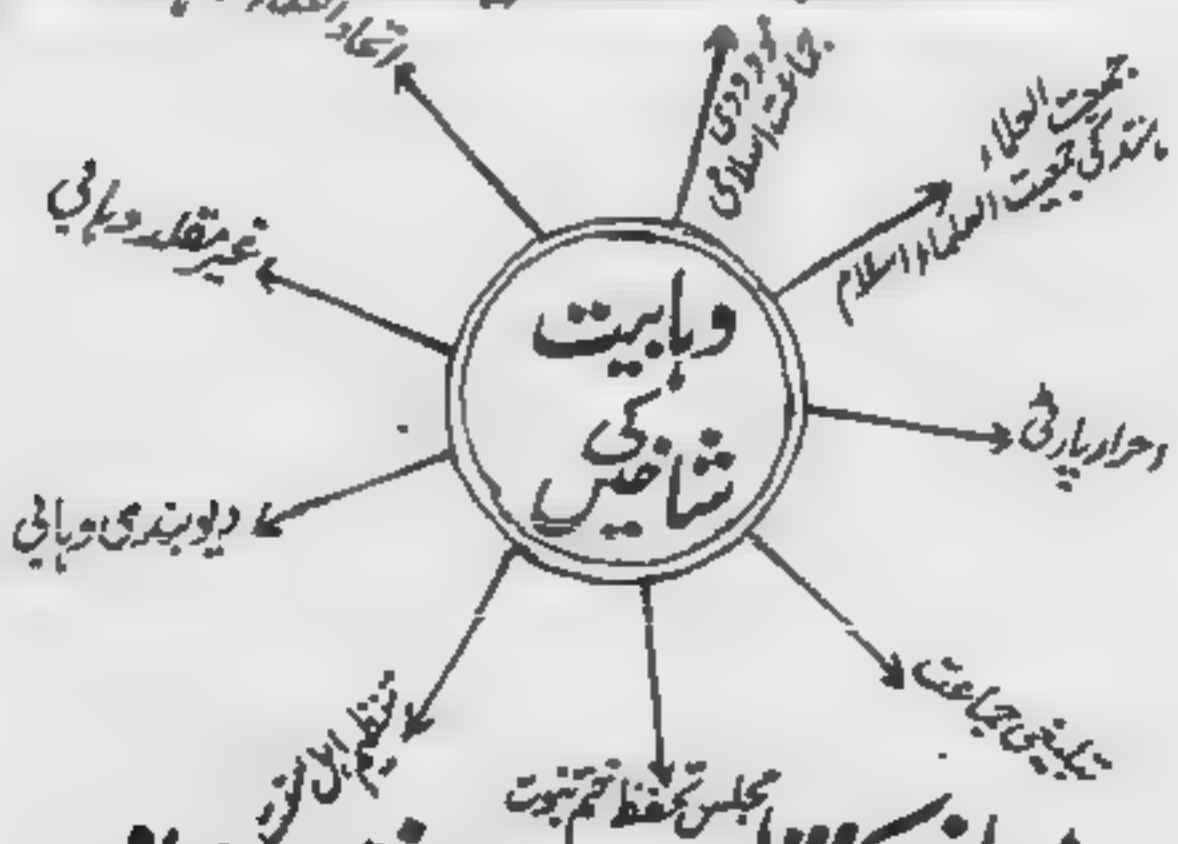 وہابیت
کی
شاخیں
مودودی
جماعت اسلامی
جمعیت العلماء
جمعیت العلماء اسلام
احرار پارٹی
تبلیغی جماعت
مجلس تحفظ ختم نبوت
تنظیم
دیوبندی وہابی
غیر مقلد وہابی
اتحاد